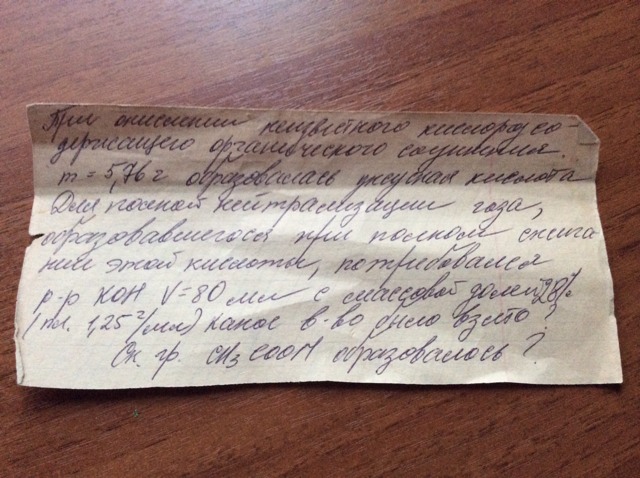 При окислении неизвестного кислородсо-
держащего органического соединения
m = 5,76 г образовалась уксусная кислота
Для полной нейтрализации газа,
образовавшегося при полном сжига
нии этой кислоты, потребовался
р-р KOH V=80 мл с массовой долей 28%
(пл. 1,25 г/мл) какое в-во было взято?
Ск. гр. CH3COOH образовалось?